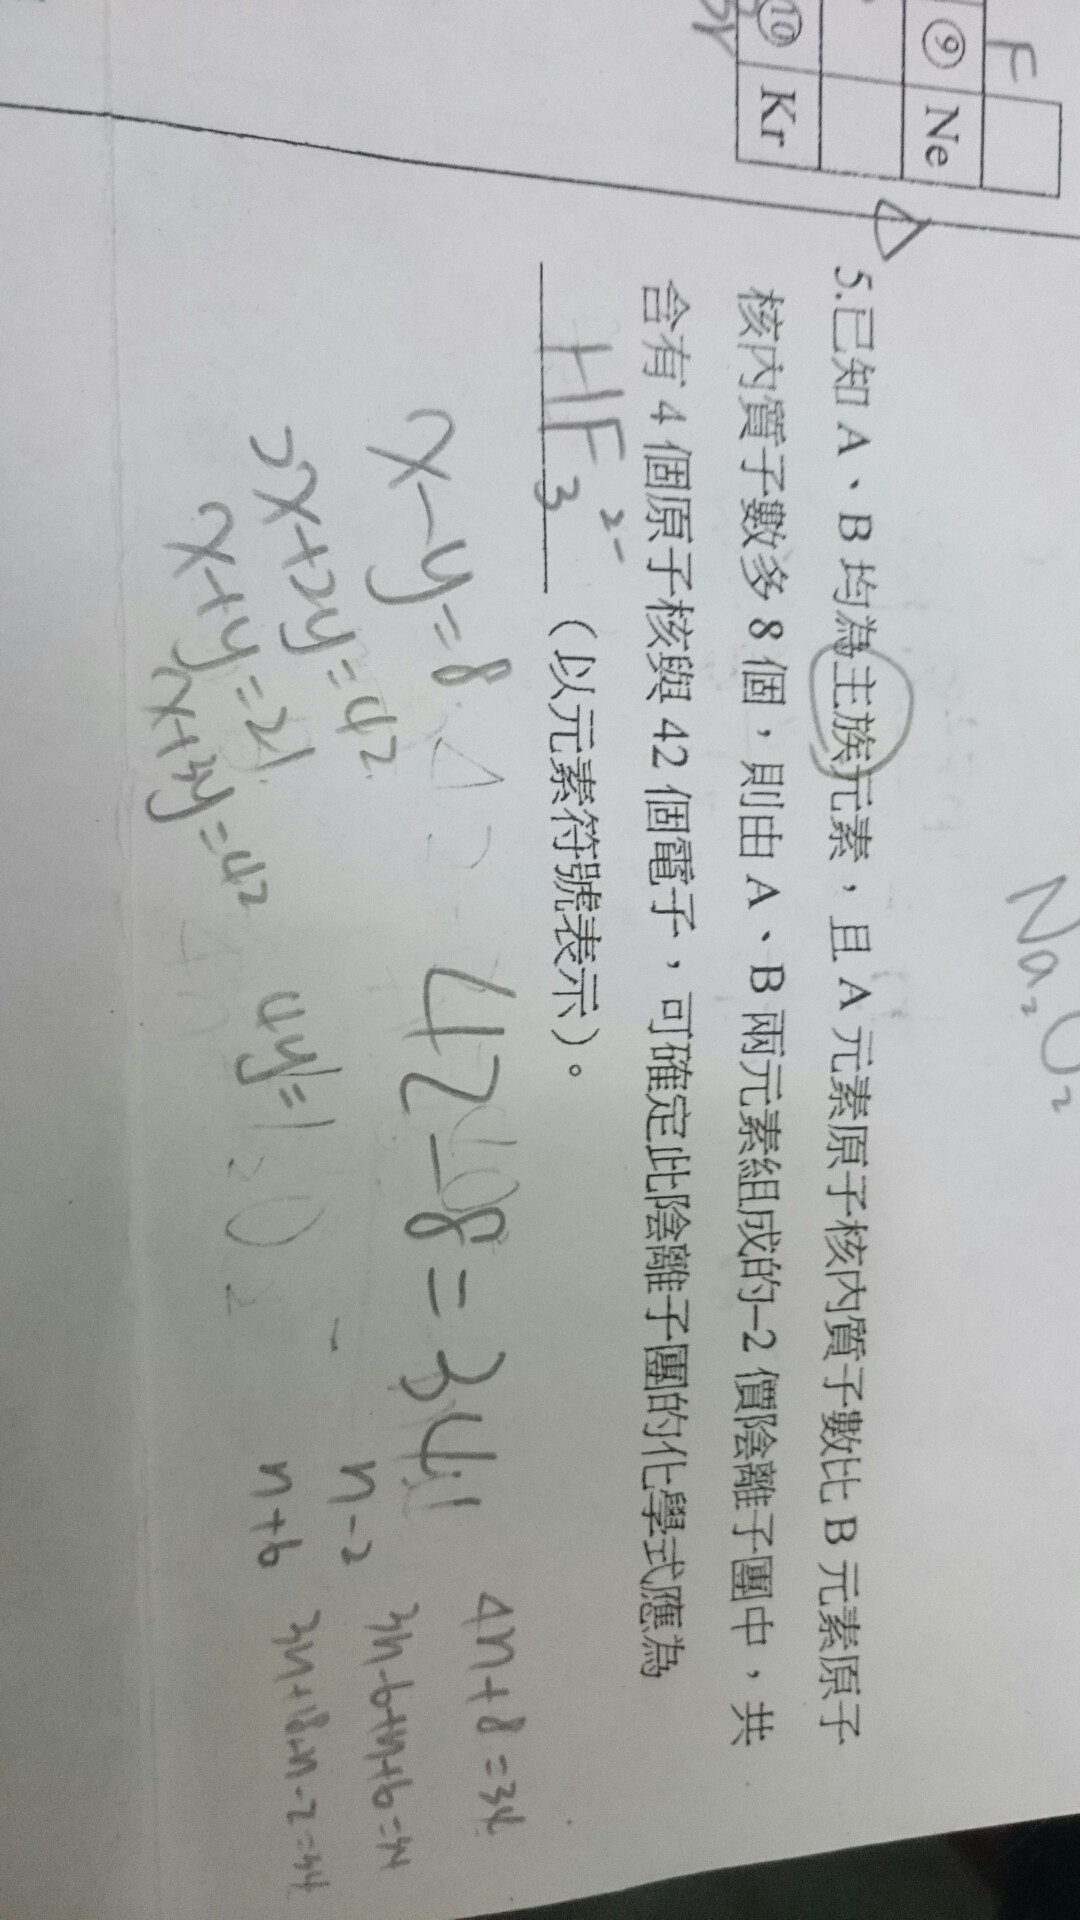 F
⑨ Ne
⑩ Kr
Na₂O₂
5.已知 A、B 均為主族元素，且 A 元素原子核內質子數比 B 元素原子
核內質子數多 8 個，則由 A、B 兩元素組成的−2 價陰離子團中，共
含有 4 個原子核與 42 個電子，可確定此陰離子團的化學式應為
HF₃²⁻（以元素符號表示）。
x−y=8
2x+2y=42
x+y=21
x+3y=42
42−8=34
n−2
n+6
4n+8=34